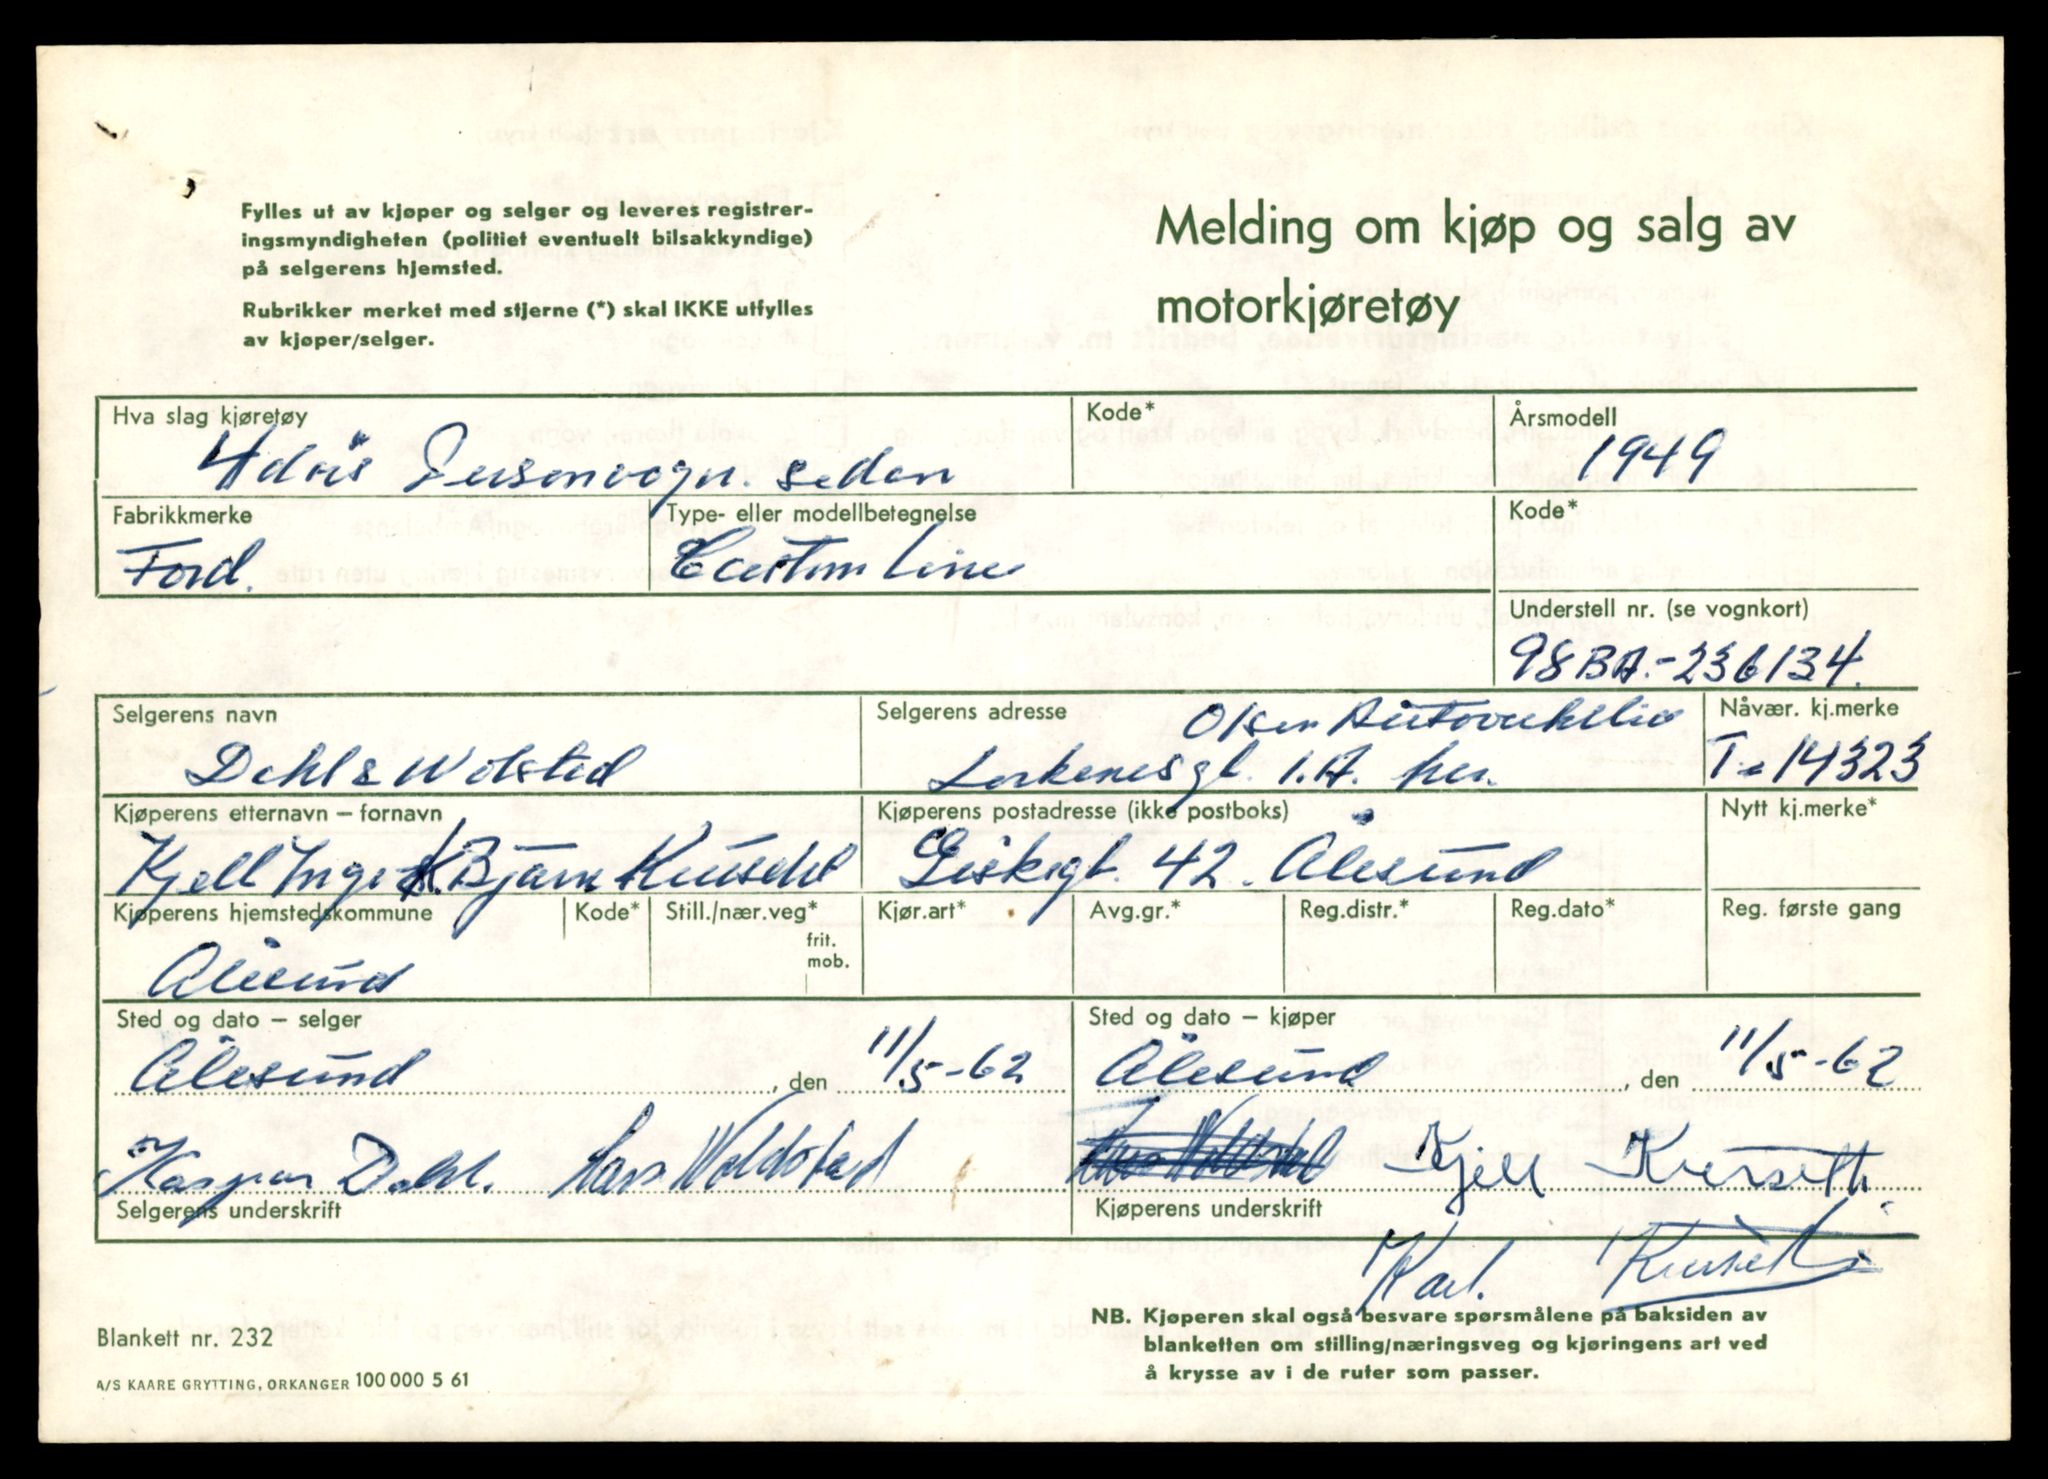 Fylles ut av kjøper og selger og leveres registrer-
ingsmyndigheten (politiet eventuelt bilsakkyndige)
på selgerens hjemsted.
Rubrikker merket med stjerne (*) skal IKKE utfylles
av kjøper/selger.
Melding om kjøp og salg av
motorkjøretøy
Hva slag kjøretøy
4dörs Personvogn. sedan
Kode*
Årsmodell
1949
Fabrikkmerke
Ford.
Type- eller modellbetegnelse
Custom Line
Kode*
Understell nr. (se vognkort)
98BA.-236134.
Selgerens navn
Dahl & Wolstad
Selgerens adresse
Olsen
1.A. her.
Nåvær. kj.merke
T-14323
Kjøperens etternavn – fornavn
Kjell Inge K. Bjarne
Kjøperens postadresse (ikke postboks)
42. Ålesund
Nytt kj.merke*
Kjøperens hjemstedskommune
Ålesund
Kode*
Still./nær.veg*
frit.
mob.
Kjør.art*
Avg.gr.*
Reg.distr.*
Reg.dato*
Reg. første gang
Sted og dato – selger
Ålesund, den 11/5-62
Kaspar Dahl. Lars Woldstad
Selgerens underskrift
Sted og dato – kjøper
Ålesund, den 11/5-62
Kjell Kursetti
Kjøperens underskrift
Karl. Kurseth
NB. Kjøperen skal også besvare spørsmålene på baksiden av
blanketten om stilling/næringsveg og kjøringens art ved
å krysse av i de ruter som passer.
Blankett nr. 232
A/S KAARE GRYTTING, ORKANGER 100 000 5 61